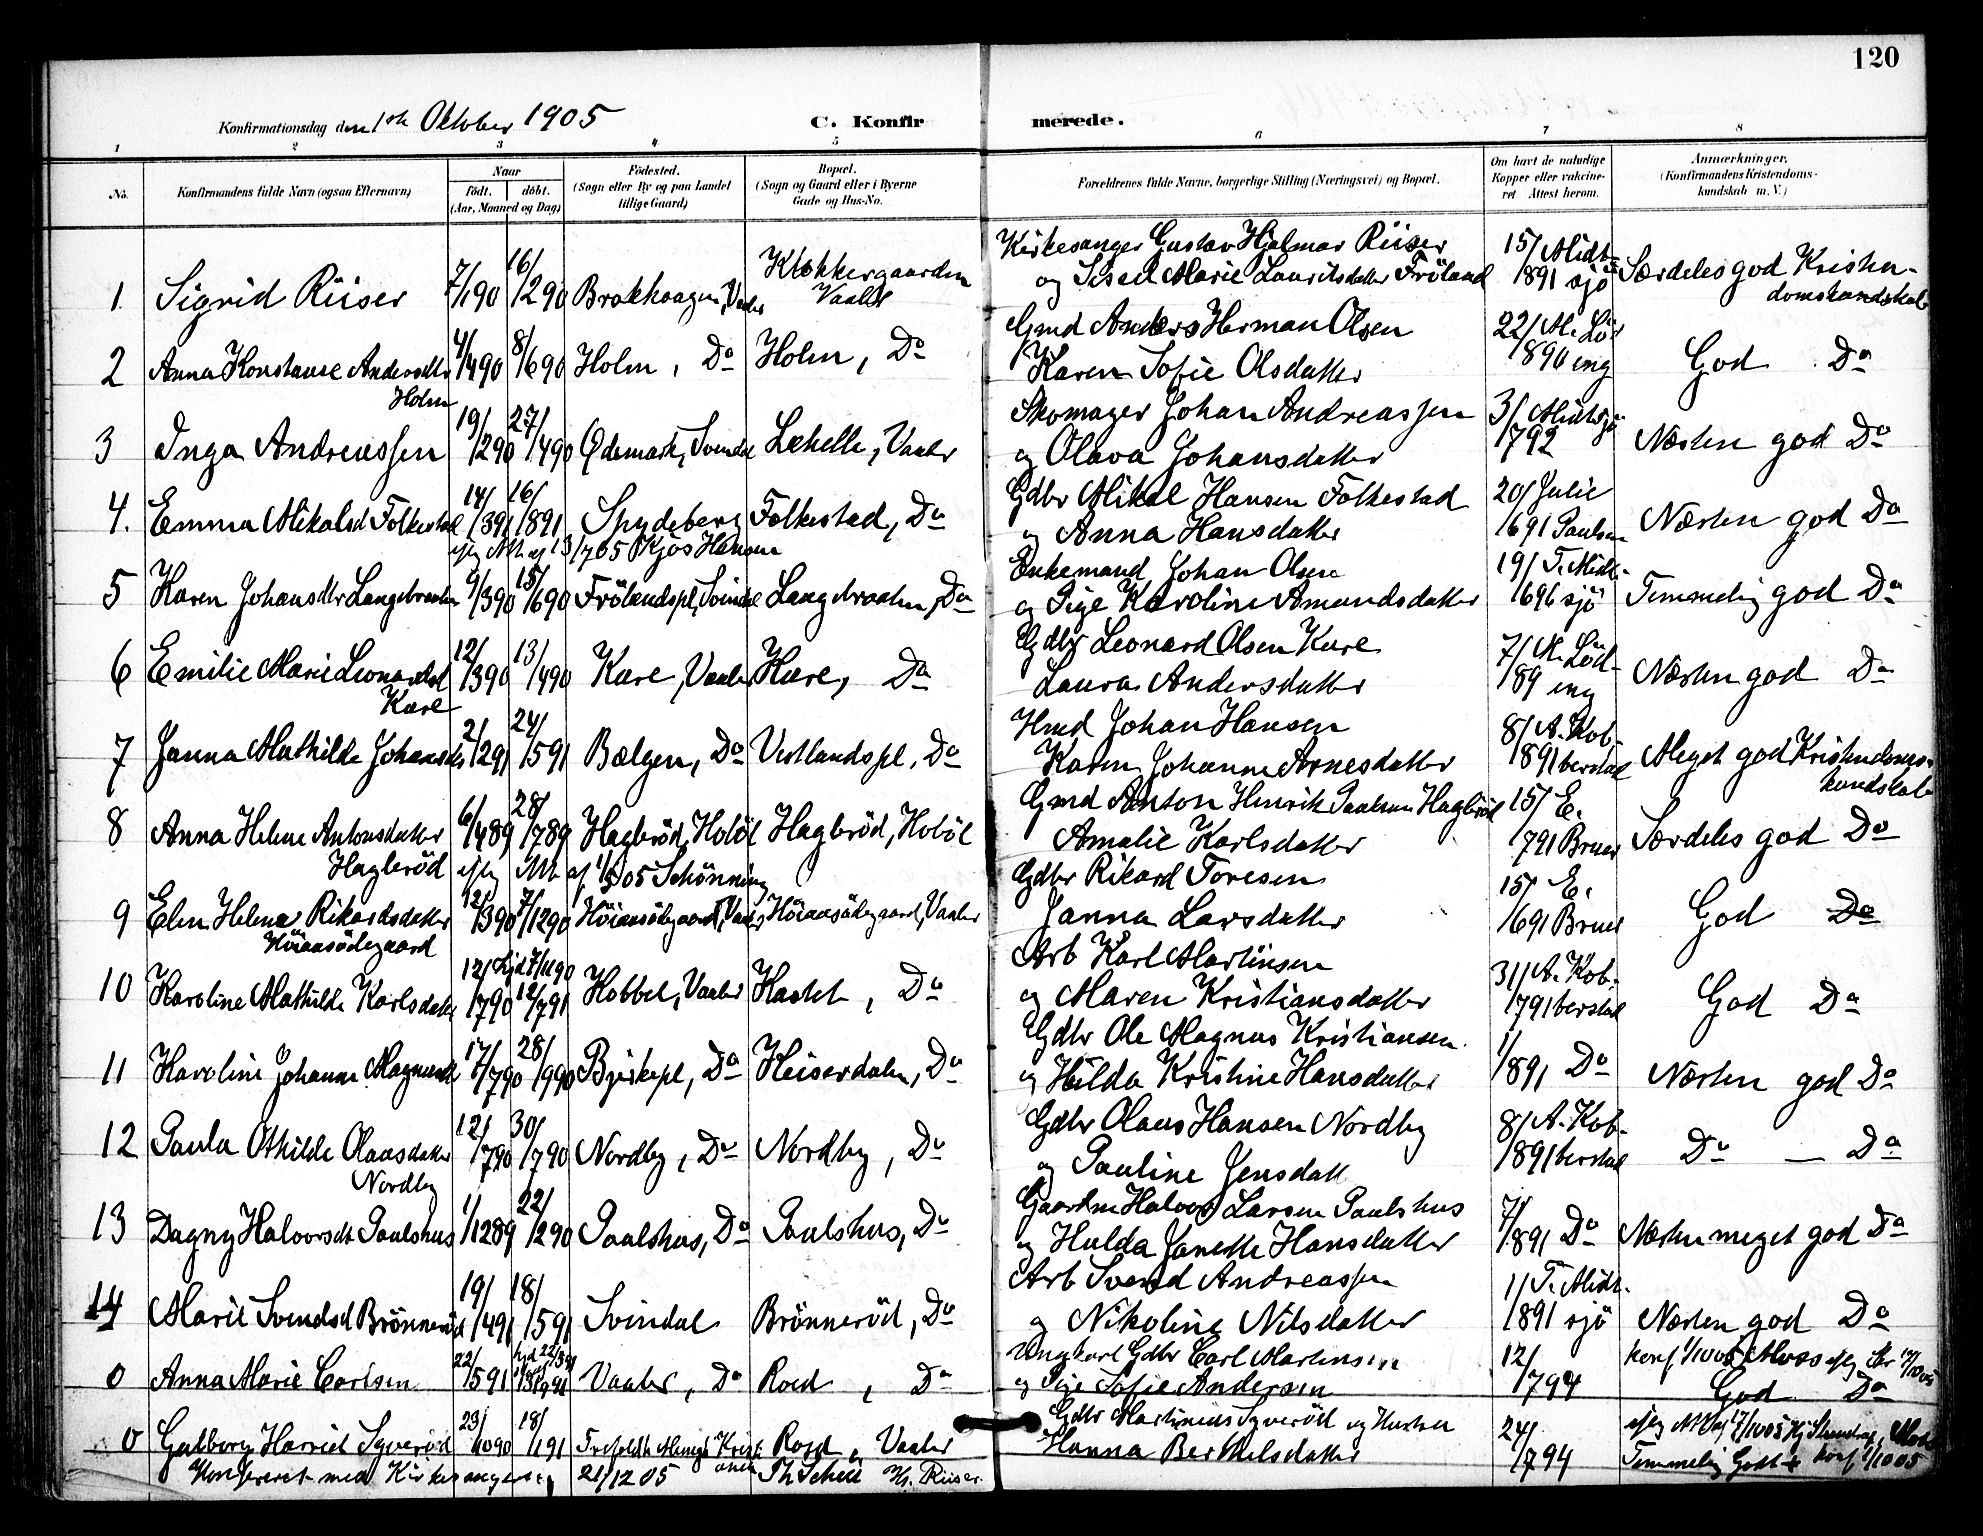 120
Konfirmationsdag den 1ste Oktober 1905 C. Konfirmerede.
1 2 3 4 5 6 7 8
No. Konfirmandens fulde Navn (ogsaa Efternavn) Naar født. døbt. (Aar, Maaned og Dag) Fødested. (Sogn eller By og paa Landet tillige Gaard) Bopæl. (Sogn og Gaard eller i Byerne Gade og Hus-No. Forældrenes fulde Navne, borgerlige Stilling (Næringsvei) og Bopæl. Om havt de naturlige Kopper eller vaccineret Attest herom. Anmærkninger. (Konfirmandens Kristendomskundskab m. V.)
1 Sigrid Riiser 7/1 90 16/2 90 Brakhaagen, Vaaler Klokkergaarden Vaaler Kirkesanger Gustav Hjalmar Riiser og Sisel Marie Lauritsdatter Fröland 15/8 91 Midtsjö Særdeles god Kristendomskundskab
2 Anna Konstanse Andersdtr Holm 4/4 90 8/6 90 Holm, Do Holm, Do Gmd Anders Herman Olsen Karen Sofie Olsdatter 22/8 90 M. Löseng God Do
3 Inga Andreassen 19/2 90 27/4 90 Ødemark, Svindal Løkelle, Vaaler Skomager Johan Andreassen og Olava Johansdatter 3/7 92 Midtsjö Næsten god Do
4. Emma Mikalsd Folkestad 14/3 91 16/8 91 Spydeberg Folkestad, Do Gdbr Mikal Hansen Folkestad og Anna Hansdatter 20/6 91 Julie Paulsen Næsten god Do
eftg Att. af 13/7 05 Kjos Hansen
5 Karen Johansdtr Langebraaten 9/3 90 15/6 90 Frölandspl, Svindal Langebraaten, Do Enkemand Johan Olsen og Pige Karoline Amundsdatter 19/6 96 T. Midtsjö Temmelig god Do
6 Emilie Marie Leonardsd Kure 12/3 90 13/4 90 Kure, Vaaler Kure, Do Gdbr Leonard Olsen Kure Laura Andersdatter 7/ 89 Næsten god Do
7 Janna Mathilde Johansdtr 2/2 91 24/5 91 Bælgen, Do Vestlandspl, Do Hmd Johan Hansen Karen Johanne Arnesdatter 8/8 91 A. Kobberstad Meget god Kristendomskundskab
8 Anna Helene Antonsdatter Hagleröd 6/4 89 28/7 89 Hagleröd, Hobøl Hagleröd, Hobøl Gmd Anton Henrik Paulsen Hagleröd Amalie Karlsdatter 15/7 91 E. Bruer Særdeles god Do
eftg Att. af 05 Schönning
9 Elen Helena Rikardsdatter Höiaasödegaard 12/3 90 7/12 90 Höiaasödegaard, Vaaler Höiaasödegaard, Vaaler Gdbr Rikard Toresen Janna Larsdatter 15/6 91 E. Bruer God Do
10 Karoline Mathilde Karlsdatter 12/7 90 hjd 7/11 90 12/7 91 Hobbel, Vaaler Haslet, Do Arb Karl Martinsen og Maren Kristiansdatter 31/7 91 A. Kobberstad God Do
11 Karoline Johanne Magnusd 17/7 90 28/9 90 Bjerkepl, Do Keiserdalen, Do Gdbr Ole Magnus Kristiansen og Hilda Kristine Hansdatter 1/8 91 Do Næsten god Do
12 Paula Othilde Olausdatter Nordby 12/7 90 30/7 90 Nordby, Do Nordby, Do Gdbr Olaus Hansen Nordby og Pauline Jensdatt 8/8 91 A. Kobberstad Do — Do
13 Dagny Halvorsdt Paulshus 1/12 89 22/2 90 Paulshus, Do Paulshus, Do Gaardm Halvor Larsen Paulshus og Hulda Janette Hansdatter 7/8 91 Do Næsten meget god Do
14 Marie Svendsd Brönneröd 19/4 91 18/5 91 Svindal Brönneröd, Do Arb Svend Andreassen og Nikoline Nilsdatter 1/8 91 T. Midtsjö Næsten god Do
0 Anna Marie Carlsen 22/5 91 Vaaler, Do Roed, Do Ungkarl Gdbr Carl Martinsen og Pige Sofie Andersen 12/7 94 konf 1/10 05 Moss eftg God Do
0 Galborg Harriet Syveröd 23/10 90 18/1 91 Roed, Vaaler Gdbr Martinius Syveröd og Hustru Hanna Berthelsdatter 24/7 94 Temmelig Godt konf 1/10 05
Konfereret med Kirkesangeren 21/12 05 Th Schiï Hj. Riiser